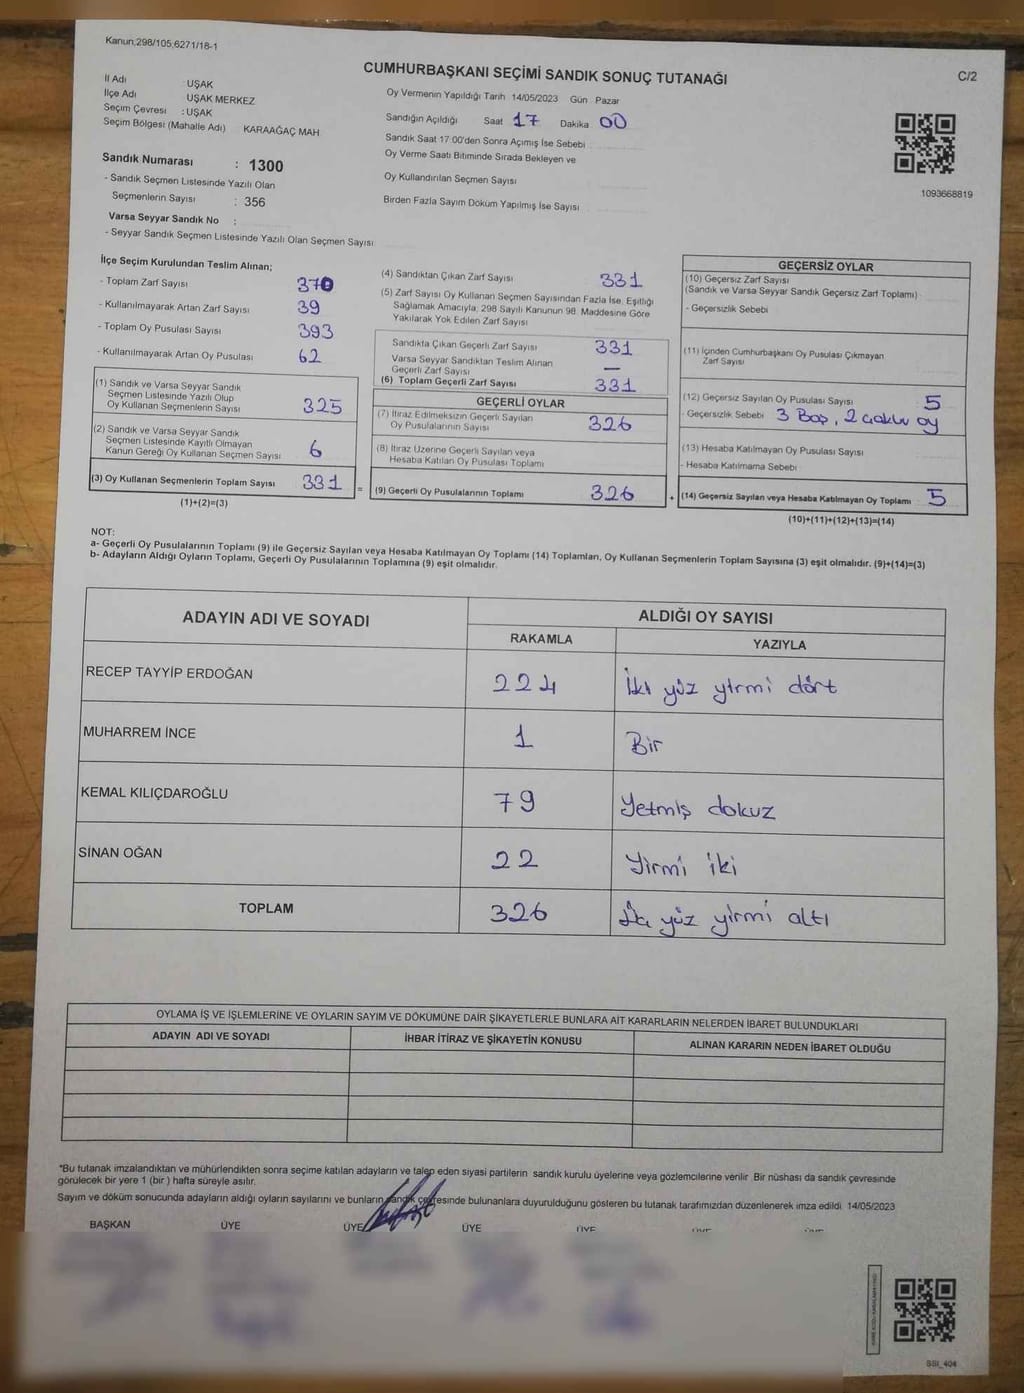 Kanun;298/105,6271/18-1
CUMHURBAŞKANI SEÇİMİ SANDIK SONUÇ TUTANAĞI
C/2
İl Adı : UŞAK
İlçe Adı UŞAK MERKEZ
Seçim Çevresi : UŞAK
Seçim Bölgesi (Mahalle Adı) KARAAĞAÇ MAH
Sandık Numarası : 1300
- Sandık Seçmen Listesinde Yazılı Olan
Seçmenlerin Sayısı : 356
Varsa Seyyar Sandık No :
- Seyyar Sandık Seçmen Listesinde Yazılı Olan Seçmen Sayısı
Oy Vermenin Yapıldığı Tarih 14/05/2023 Gün Pazar
Sandığın Açıldığı Saat 17 Dakika 00
Sandık Saat 17:00'den Sonra Açımış İse Sebebi :
Oy Verme Saati Bitiminde Sırada Bekleyen ve
Oy Kullandırılan Seçmen Sayısı
Birden Fazla Sayım Döküm Yapılmış İse Sayısı
1093668819
İlçe Seçim Kurulundan Teslim Alınan;
- Toplam Zarf Sayısı 370
- Kullanılmayarak Artan Zarf Sayısı 39
- Toplam Oy Pusulası Sayısı 393
- Kullanılmayarak Artan Oy Pusulası 62
(1) Sandık ve Varsa Seyyar Sandık
Seçmen Listesinde Yazılı Olup
Oy Kullanan Seçmenlerin Sayısı 325
(2) Sandık ve Varsa Seyyar Sandık
Seçmen Listesinde Kayıtlı Olmayan
Kanun Gereği Oy Kullanan Seçmen Sayısı 6
(3) Oy Kullanan Seçmenlerin Toplam Sayısı 331
(1)+(2)=(3)
=
(4) Sandıktan Çıkan Zarf Sayısı 331
(5) Zarf Sayısı Oy Kullanan Seçmen Sayısından Fazla İse, Eşitliği
Sağlamak Amacıyla, 298 Sayılı Kanunun 98. Maddesine Göre
Yakılarak Yok Edilen Zarf Sayısı
Sandıkta Çıkan Geçerli Zarf Sayısı 331
Varsa Seyyar Sandıktan Teslim Alınan
Geçerli Zarf Sayısı —
(6) Toplam Geçerli Zarf Sayısı 331
GEÇERLİ OYLAR
(7) İtiraz Edilmeksizin Geçerli Sayılan
Oy Pusulalarının Sayısı 326
(8) İtiraz Üzerine Geçerli Sayılan veya
Hesaba Katılan Oy Pusulası Toplamı
(9) Geçerli Oy Pusulalarının Toplamı 326
+
GEÇERSİZ OYLAR
(10) Geçersiz Zarf Sayısı
(Sandık ve Varsa Seyyar Sandık Geçersiz Zarf Toplamı)
- Geçersizlik Sebebi
(11) İçinden Cumhurbaşkanı Oy Pusulası Çıkmayan
Zarf Sayısı
(12) Geçersiz Sayılan Oy Pusulası Sayısı 5
- Geçersizlik Sebebi 3 Boş, 2 oy
(13) Hesaba Katılmayan Oy Pusulası Sayısı
- Hesaba Katılmama Sebebi
(14) Geçersiz Sayılan veya Hesaba Katılmayan Oy Toplamı 5
(10)+(11)+(12)+(13)=(14)
NOT:
a- Geçerli Oy Pusulalarının Toplamı (9) ile Geçersiz Sayılan veya Hesaba Katılmayan Oy Toplamı (14) Toplamları, Oy Kullanan Seçmenlerin Toplam Sayısına (3) eşit olmalıdır. (9)+(14)=(3)
b- Adayların Aldığı Oyların Toplamı, Geçerli Oy Pusulalarının Toplamına (9) eşit olmalıdır.
ADAYIN ADI VE SOYADI
ALDIĞI OY SAYISI
RAKAMLA YAZIYLA
RECEP TAYYİP ERDOĞAN 224 İki yüz yirmi dört
MUHARREM İNCE 1 Bir
KEMAL KILIÇDAROĞLU 79 Yetmiş dokuz
SİNAN OĞAN 22 Yirmi iki
TOPLAM 326 yüz yirmi altı
OYLAMA İŞ VE İŞLEMLERİNE VE OYLARIN SAYIM VE DÖKÜMÜNE DAİR ŞİKAYETLERLE BUNLARA AİT KARARLARIN NELERDEN İBARET BULUNDUKLARI
ADAYIN ADI VE SOYADI İHBAR İTİRAZ VE ŞİKAYETİN KONUSU ALINAN KARARIN NEDEN İBARET OLDUĞU
*Bu tutanak imzalandıktan ve mühürlendikten sonra seçime katılan adayların ve talep eden siyasi partilerin sandık kurulu üyelerine veya gözlemcilerine verilir. Bir nüshası da sandık çevresinde
görülecek bir yere 1 (bir ) hafta süreyle asılır.
Sayım ve döküm sonucunda adayların aldığı oyların sayılarını ve bunların sandık çevresinde bulunanlara duyurulduğunu gösteren bu tutanak tarafımızdan düzenlenerek imza edildi. 14/05/2023
BAŞKAN ÜYE ÜYE ÜYE ÜYE
SSI_404